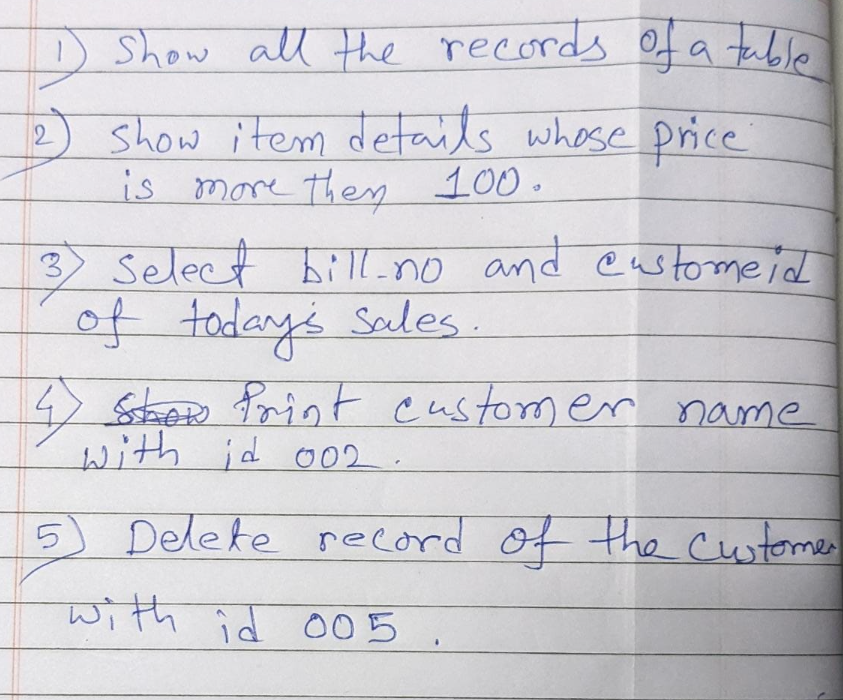 1) Show all the records of a table
2) Show item details whose price
is more then 100.
3) Select bill_no and customeid
of today's sales.
4) Print customer name
with id 002.
5) Delete record of the customer
with id 005.